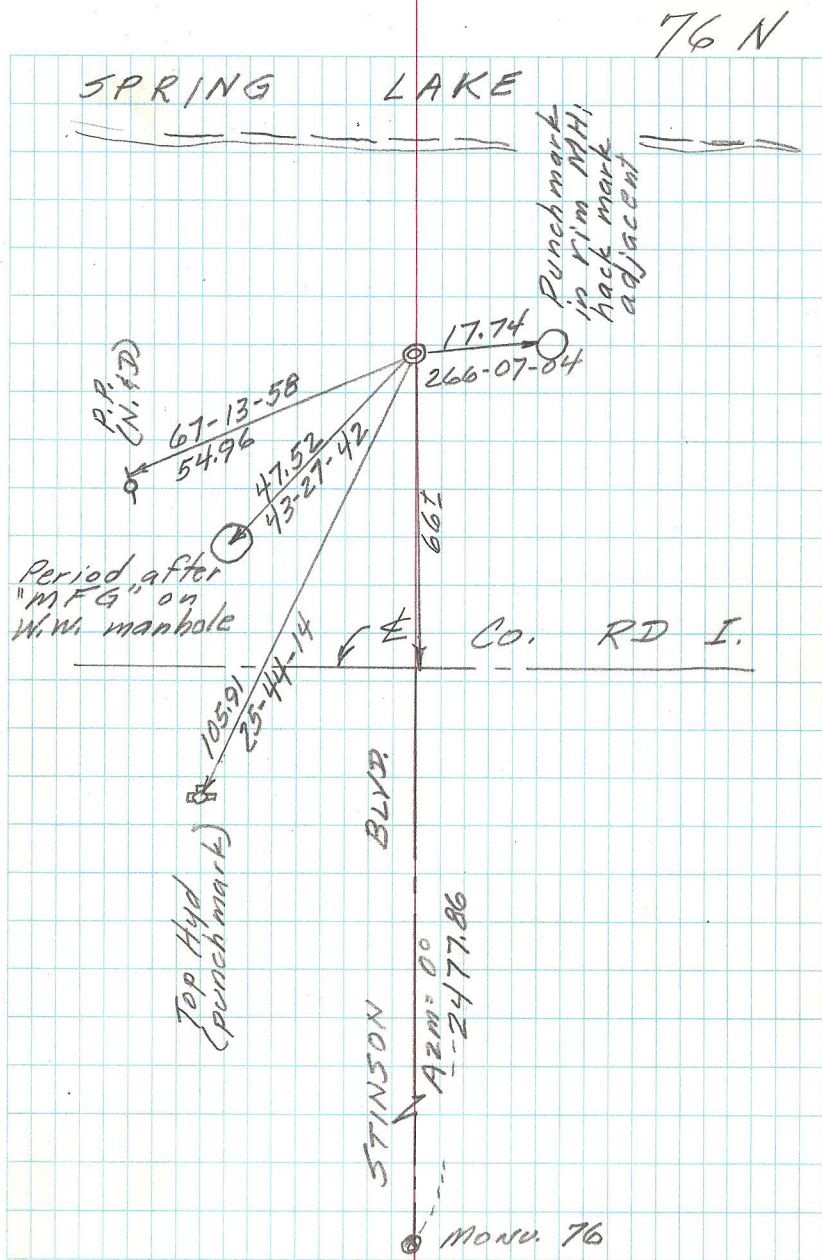 76 N
SPRING LAKE
Punchmark
in rim MH,
hack mark
adjacent
17.74
266-07-04
P.P.
(N.&D)
67-13-58
54.96
47.52
43-27-42
66±
Period after
"MFG" on
W.W. manhole
℄ Co. RD I.
105.91
25-44-14
Top Hyd
(punchmark)
STINSON BLVD.
Azm = 0°
2477.86
MONU. 76